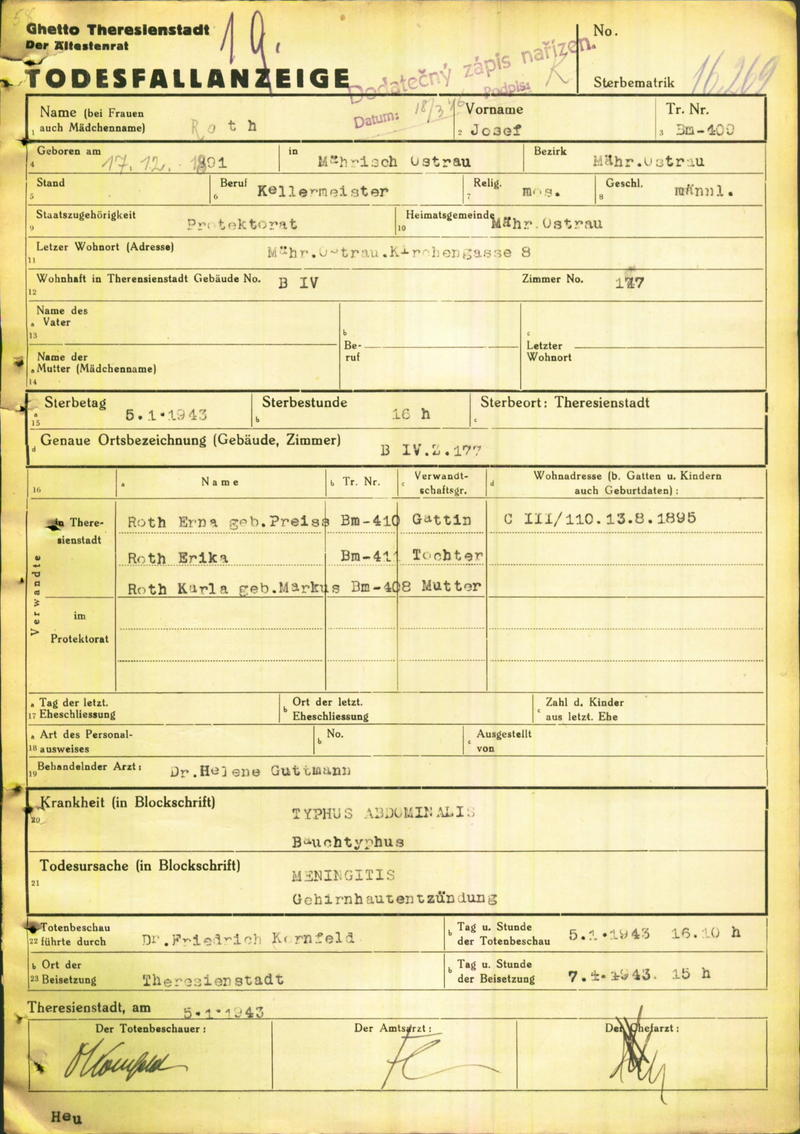 Ghetto Theresienstadt
Der Ältestenrat
19.
No.
TODESFALLANZEIGE
Dodatečný zápis nařízen.
Podpis: K
Datum: 18/3
Sterbematrik 16.269
Name (bei Frauen auch Mädchenname) Roth
1
Vorname Josef
2
Tr. Nr. Bm-409
3
Geboren am 17.12. 1891
4
in Mährisch Ostrau
Bezirk Mähr.Ostrau
Stand
5
Beruf Kellermeister
6
Relig. mos.
7
Geschl. männl.
8
Staatszugehörigkeit Protektorat
9
Heimatsgemeinde Mähr.Ostrau
10
Letzer Wohnort (Adresse) Mähr.Ostrau.Kirchengasse 8
11
Wohnhaft in Therensienstadt Gebäude No. B IV
12
Zimmer No. 177
Name des
a Vater
13
b Be-
ruf
c Letzter
Wohnort
Name der
a Mutter (Mädchenname)
14
Sterbetag 5.1.1943
a 15
Sterbestunde 16 h
b
Sterbeort: Theresienstadt
c
d Genaue Ortsbezeichnung (Gebäude, Zimmer) B IV.Z.177
16
a Name
b Tr. Nr.
c Verwandt-
schaftsgr.
d Wohnadresse (b. Gatten u. Kindern
auch Geburtdaten) :
Verwandte
in There-
sienstadt
Roth Erna geb.Preiss Bm-410 Gattin C III/110.13.8.1895
Roth Erika Bm-411 Tochter
Roth Karla geb.Markus Bm-408 Mutter
im
Protektorat
a Tag der letzt.
17 Eheschliessung
b Ort der letzt.
Eheschliessung
c Zahl d. Kinder
aus letzt. Ehe
a Art des Personal-
18 ausweises
b No.
c Ausgestellt
von
19 Behandelnder Arzt: Dr.Helene Guttmann
Krankheit (in Blockschrift) TYPHUS ABDOMINALIS
20
Bauchtyphus
Todesursache (in Blockschrift) MENINGITIS
21
Gehirnhautentzündung
a Totenbeschau
22 führte durch Dr.Friedrich Kornfeld
b Tag u. Stunde
der Totenbeschau 5.1.1943 16.10 h
b Ort der
23 Beisetzung Theresienstadt
b Tag u. Stunde
der Beisetzung 7.1.1943. 15 h
Theresienstadt, am 5.1.1943
Der Totenbeschauer :
Der Amtsarzt :
Der Chefarzt :
Heu